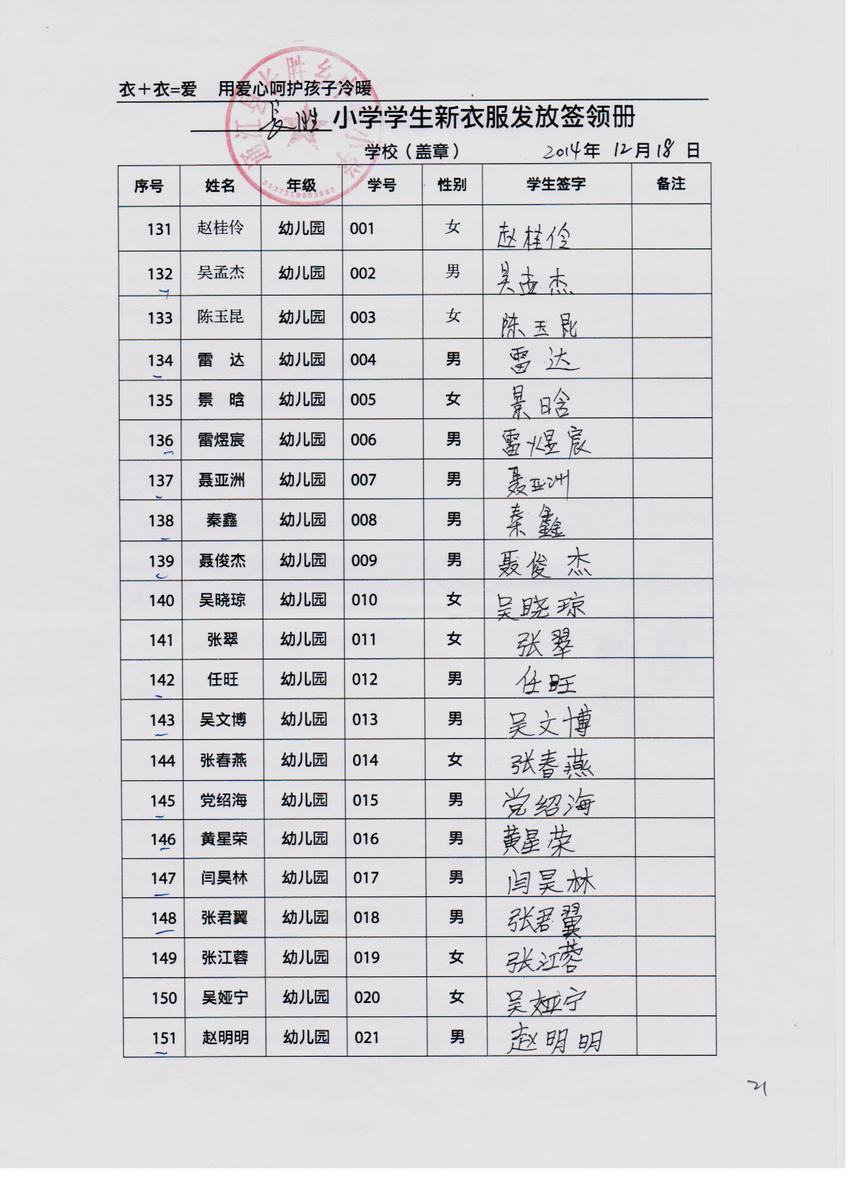 衣＋衣=爱 用爱心呵护孩子冷暖
長胜 小学学生新衣服发放签领册
学校（盖章） 2014年 12月18日
序号 姓名 年级 学号 性别 学生签字 备注
131 赵桂伶 幼儿园 001 女 赵桂伶
132 吴孟杰 幼儿园 002 男 吴孟杰
133 陈玉昆 幼儿园 003 女 陈玉昆
134 雷 达 幼儿园 004 男 雷达
135 景 晗 幼儿园 005 女 景晗
136 雷煜宸 幼儿园 006 男 雷煜宸
137 聂亚洲 幼儿园 007 男 聂亚洲
138 秦鑫 幼儿园 008 男 秦鑫
139 聂俊杰 幼儿园 009 男 聂俊杰
140 吴晓琼 幼儿园 010 女 吴晓琼
141 张翠 幼儿园 011 女 张翠
142 任旺 幼儿园 012 男 任旺
143 吴文博 幼儿园 013 男 吴文博
144 张春燕 幼儿园 014 女 张春燕
145 党绍海 幼儿园 015 男 党绍海
146 黄星荣 幼儿园 016 男 黄星荣
147 闫昊林 幼儿园 017 男 闫昊林
148 张君翼 幼儿园 018 男 张君翼
149 张江蓉 幼儿园 019 女 张江蓉
150 吴娅宁 幼儿园 020 女 吴娅宁
151 赵明明 幼儿园 021 男 赵明明
21